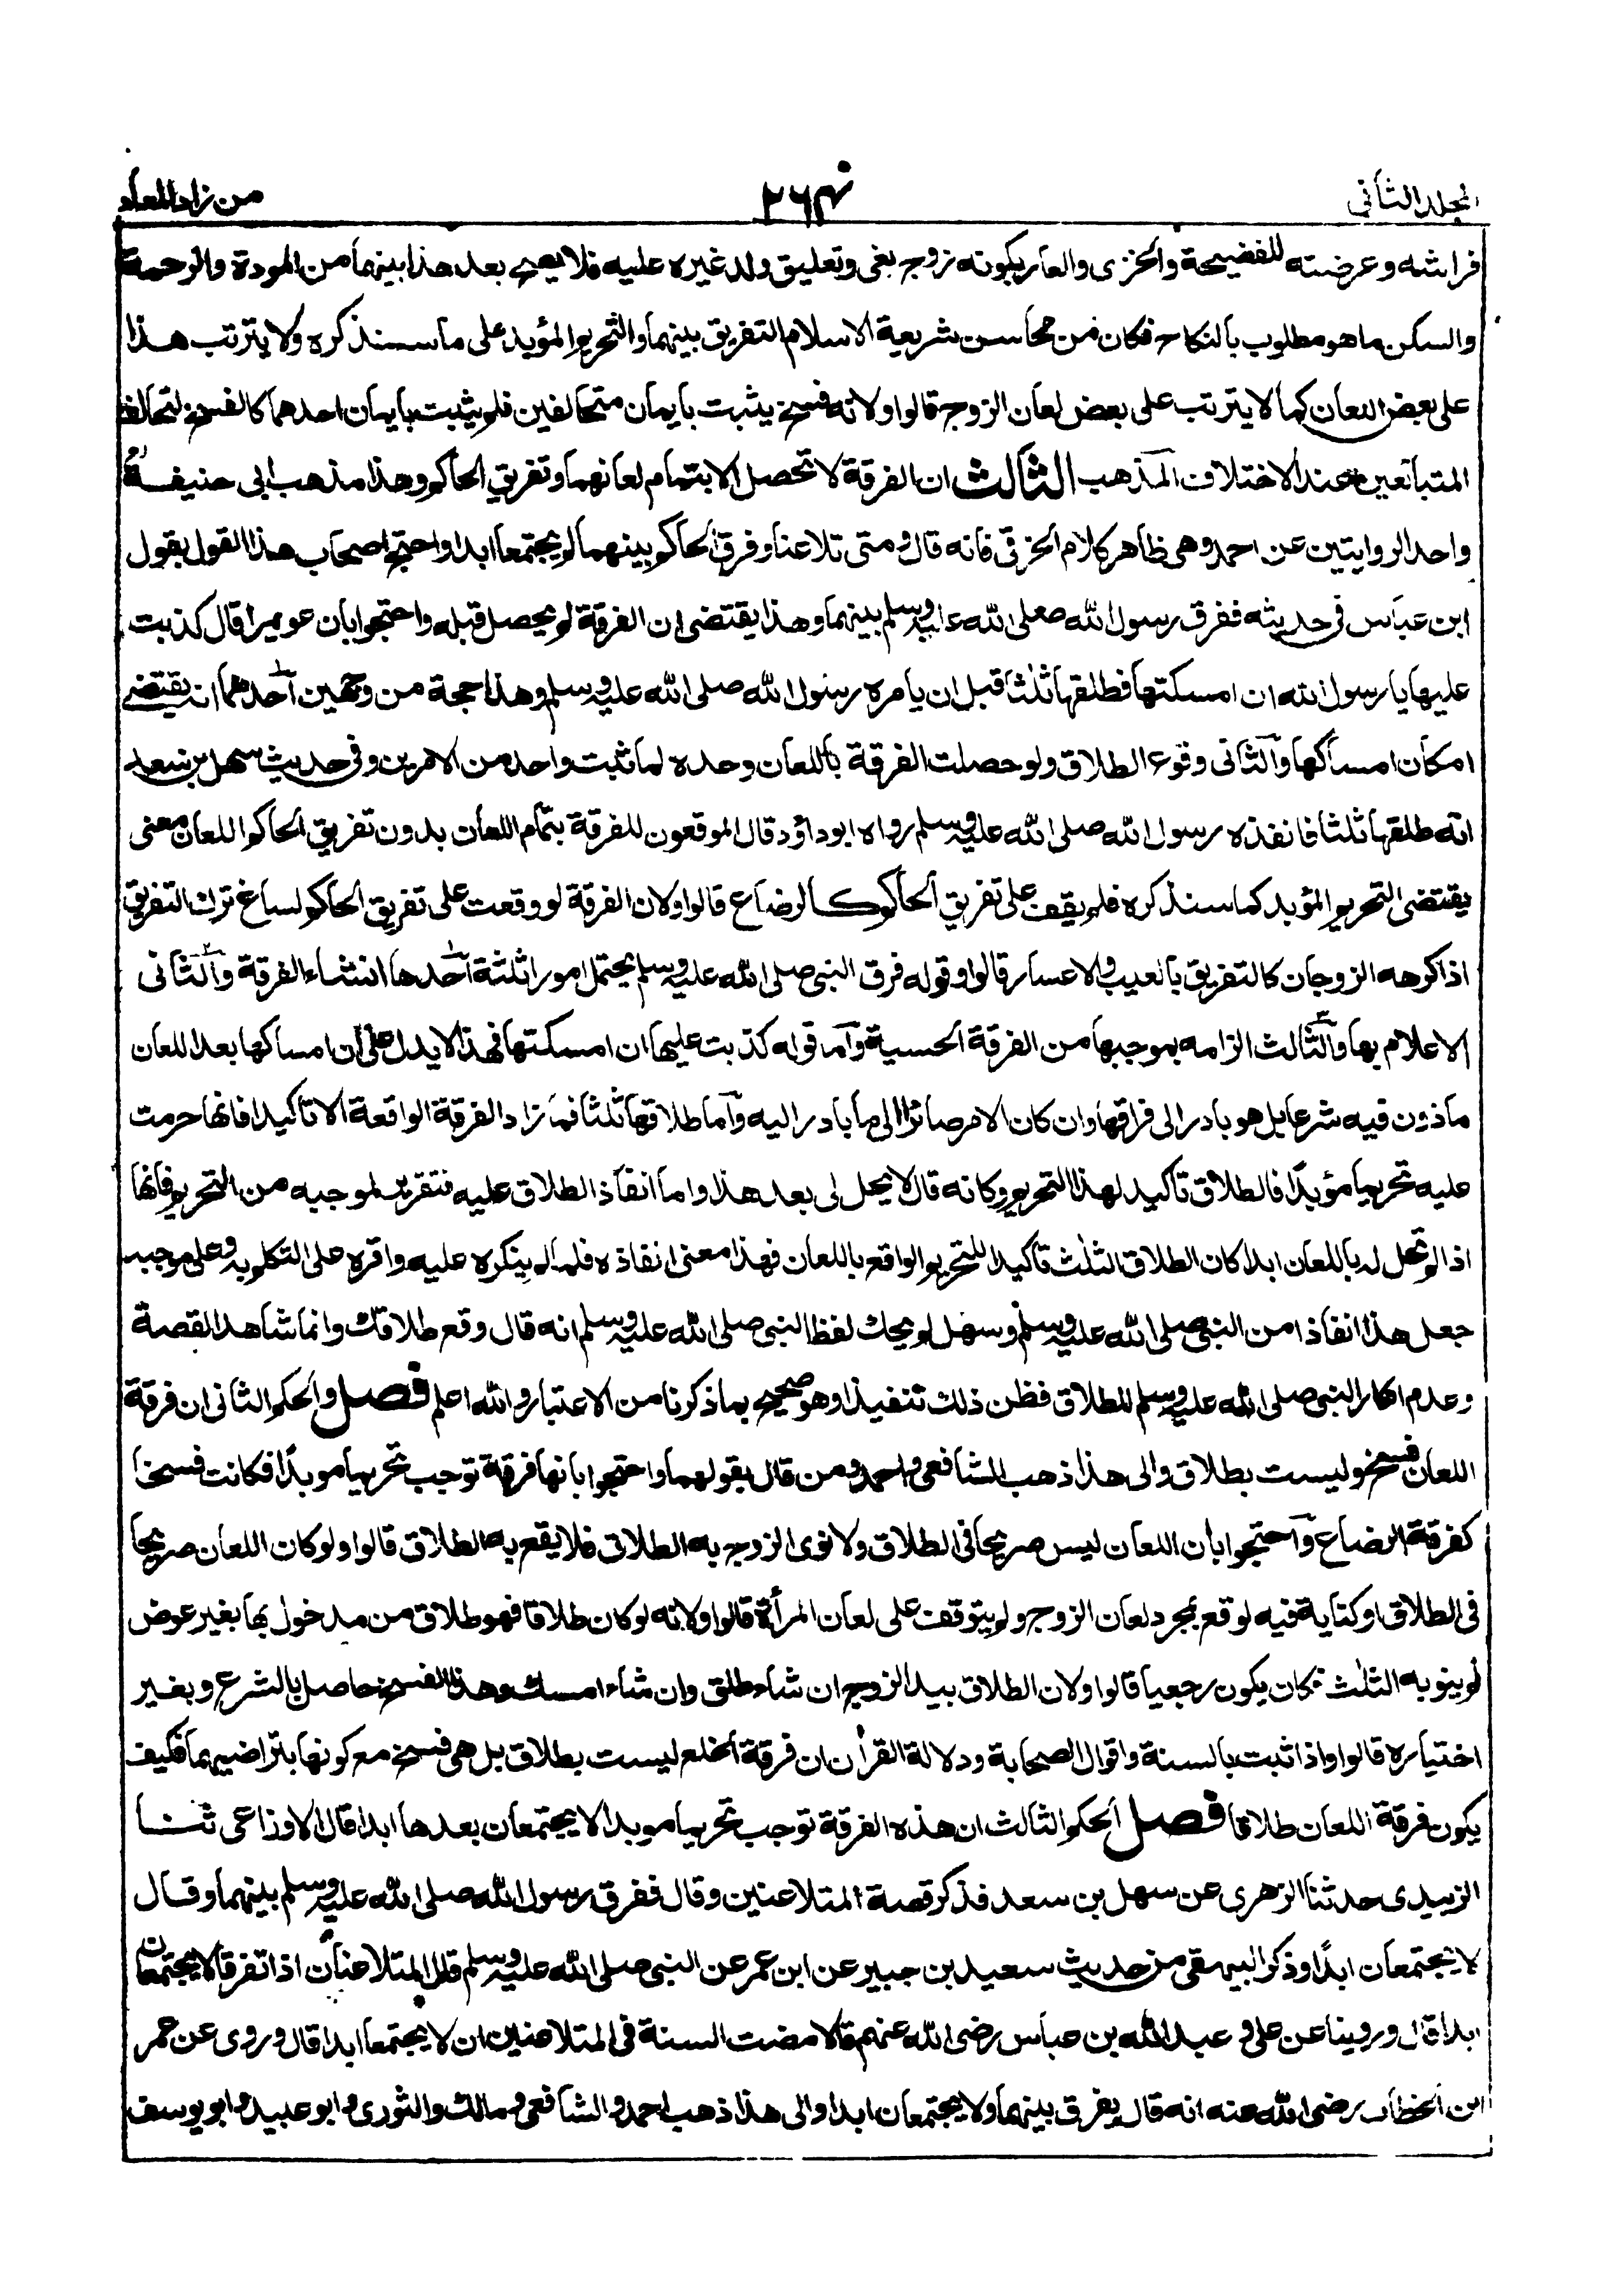 المجلد الثاني
٢٦٤
من زاد المعاد
فراشه وعرضته للفضيحة والخزى والعار بكونه زوج بغى وتعليق ولد غيره عليه فلا يحصل بعد هذا بينهما من المودة والرحمة
والسكن ما هو مطلوب بالنكاح فكان من محاسن شريعة الاسلام التفريق بينهما والتحريم المؤبد على ما سنذكره ولا يترتب هذا
على بعض اللعان كما لا يترتب على بعض لعان الزوج قالوا ولانه فسخ يثبت بايمان متحالفين فلم يثبت بايمان احدهما كالفسخ لتحالف
المتبائعين عند الاختلاف المذهب الثالث ان الفرقة لا تحصل الا بتمام لعانهما وتفريق الحاكم وهذا مذهب ابى حنيفة
واحد الروايتين عن احمد وهى ظاهر كلام الخرقى فانه قال ومتى تلاعنا وفرق الحاكم بينهما لم يجتمعا ابدا واحتج اصحاب هذا القول بقول
ابن عباس فى حديثه ففرق رسول الله صلى الله عليه وسلم بينهما وهذا يقتضى ان الفرقة لم يحصل قبله واحتجوا بان عويمرا قال كذبت
عليها يا رسول الله ان امسكتها فطلقها ثلثا قبل ان يامره رسول الله صلى الله عليه وسلم وهذا حجة من وجهين احدهما انه يقتضى
امكان امساكها والثانى وقوع الطلاق ولو حصلت الفرقة باللعان وحده لما ثبت واحد من الامرين وفى حديث سهل بن سعد
انه طلقها ثلثا فانفذه رسول الله صلى الله عليه وسلم رواه ابو داؤد قال الموقعون للفرقة بتمام اللعان بدون تفريق الحاكم اللعان معنى
يقتضى التحريم المؤبد كما سنذكره فلم يقف على تفريق الحاكم كالرضاع قالوا ولان الفرقة لو وقعت على تفريق الحاكم لساغ ترك التفريق
اذا كرهه الزوجان كالتفريق بالعيب والاعسار قالوا وقوله فرق النبى صلى الله عليه وسلم يحتمل امورا ثلثة احدها انشاء الفرقة والثانى
الاعلام بها والثالث الزامه بموجبها من الفرقة الحسية واما قوله كذبت عليها ان امسكتها فهذا لا يدل على ان امساكها بعد اللعان
ماذون فيه شرعا بل هو بادر الى فراقها وان كان الامر صائرا الى ما بادر اليه واما طلاقها ثلثا فما زاد الفرقة الواقعة الا تاكيدا فانها حرمت
عليه تحريما مؤبدا فالطلاق تاكيد لهذا التحريم وكانه قال لا يحل لى بعد هذا واما انفاذ الطلاق عليه فتقرير لموجبه من التحريم فانها
اذا لم تحل له باللعان ابدا كان الطلاق الثلث تاكيدا للتحريم الواقع باللعان فهذا معنى انفاذه فلما لم ينكره عليه واقره على التكلم به وعلى موجبه
جعل هذا انفاذا من النبى صلى الله عليه وسلم وسهل لم يحك لفظ النبى صلى الله عليه وسلم انه قال وقع طلاقك وانما شاهد القصة
وعدم انكار النبى صلى الله عليه وسلم للطلاق فظن ذلك تنفيذا وهو صحيح بما ذكرنا من الاعتبار والله اعلم فصل والحكم الثانى ان فرقة
اللعان فسخ وليست بطلاق والى هذا ذهب الشافعى واحمد ومن قال بقولهما واحتجوا بانها فرقة توجب تحريما موبدا فكانت فسخا
كفرقة الرضاع واحتجوا بان اللعان ليس صريحا فى الطلاق ولا نوى الزوج به الطلاق فلا يقع به الطلاق قالوا ولو كان اللعان صريحا
فى الطلاق او كناية فيه لوقع بمجرد لعان الزوج ولم يتوقف على لعان المرأة قالوا ولانه لو كان طلاقا فهو طلاق من مدخول بها بغير عوض
لم ينو به الثلث فكان يكون رجعيا قالوا ولان الطلاق بيد الزوج ان شاء طلق وان شاء امسك وهذا الفسخ حاصل بالشرع وبغير
اختياره قالوا واذا ثبت بالسنة واقوال الصحابة ودلالة القرأن ان فرقة الخلع ليست بطلاق بل هى فسخ مع كونها بتراضيهما فكيف
يكون فرقة اللعان طلاقا فصل الحكم الثالث ان هذه الفرقة توجب تحريما موبدا لا يجتمعان بعدها ابدا قال الاوزاعى ثنا
الزبيدى حدثنا الزهرى عن سهل بن سعد فذكر قصة المتلاعنين وقال ففرق رسول الله صلى الله عليه وسلم بينهما وقال
لا يجتمعان ابدًا وذكر البيهقى من حديث سعيد بن جبير عن ابن عمر عن النبى صلى الله عليه وسلم قال المتلاعنان اذا تفرقا لا يجتمعان
ابدا قال وروينا عن على و عبد الله بن عباس رضى الله عنهم قالا مضت السنة فى المتلاعنين ان لا يجتمعا ابدا قال وروى عن عمر
ابن الخطاب رضى الله عنه انه قال يفرق بينهما ولا يجتمعان ابدا والى هذا ذهب احمد والشافعى ومالك والثورى وابو عبيد وابو يوسف